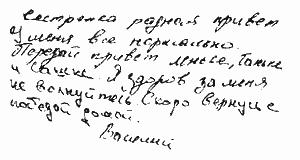 сестренка родная привет
у меня все нормально.
Передай привет меньше, Тане
и Сашке. Я здоров за меня
не волнуйтесь. Скоро вернусь с
победой домой.
Василий